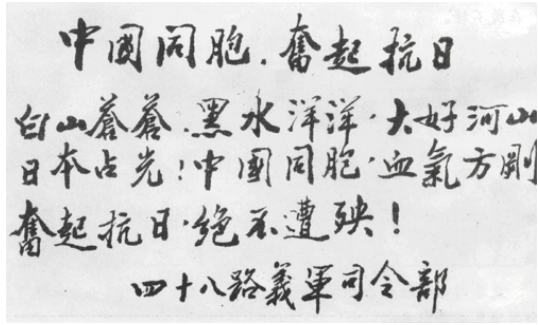 中國同胞.奮起抗日
白山蒼蒼.黑水洋洋.大好河山
日本占光!中國同胞.血氣方剛
奮起抗日.絕不遭殃!
四十八路義軍司令部